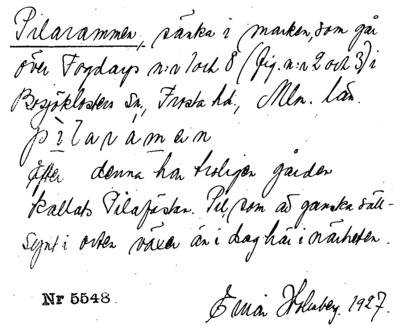 Pilarammen, sänka i marken, som går
över Fogdarps n:r 1 och 8 (fig. n:r 2 och 3) i
Bosjöklosters Sn, Frosta hd., Mlm. län.
pìlarámen
Efter denna har troligen gården
kallats Pilafästan. Pil, som är ganska säll-
synt i orten växer än i dag här i närheten.
Nr 5548
Emar Holmberg. 1927.